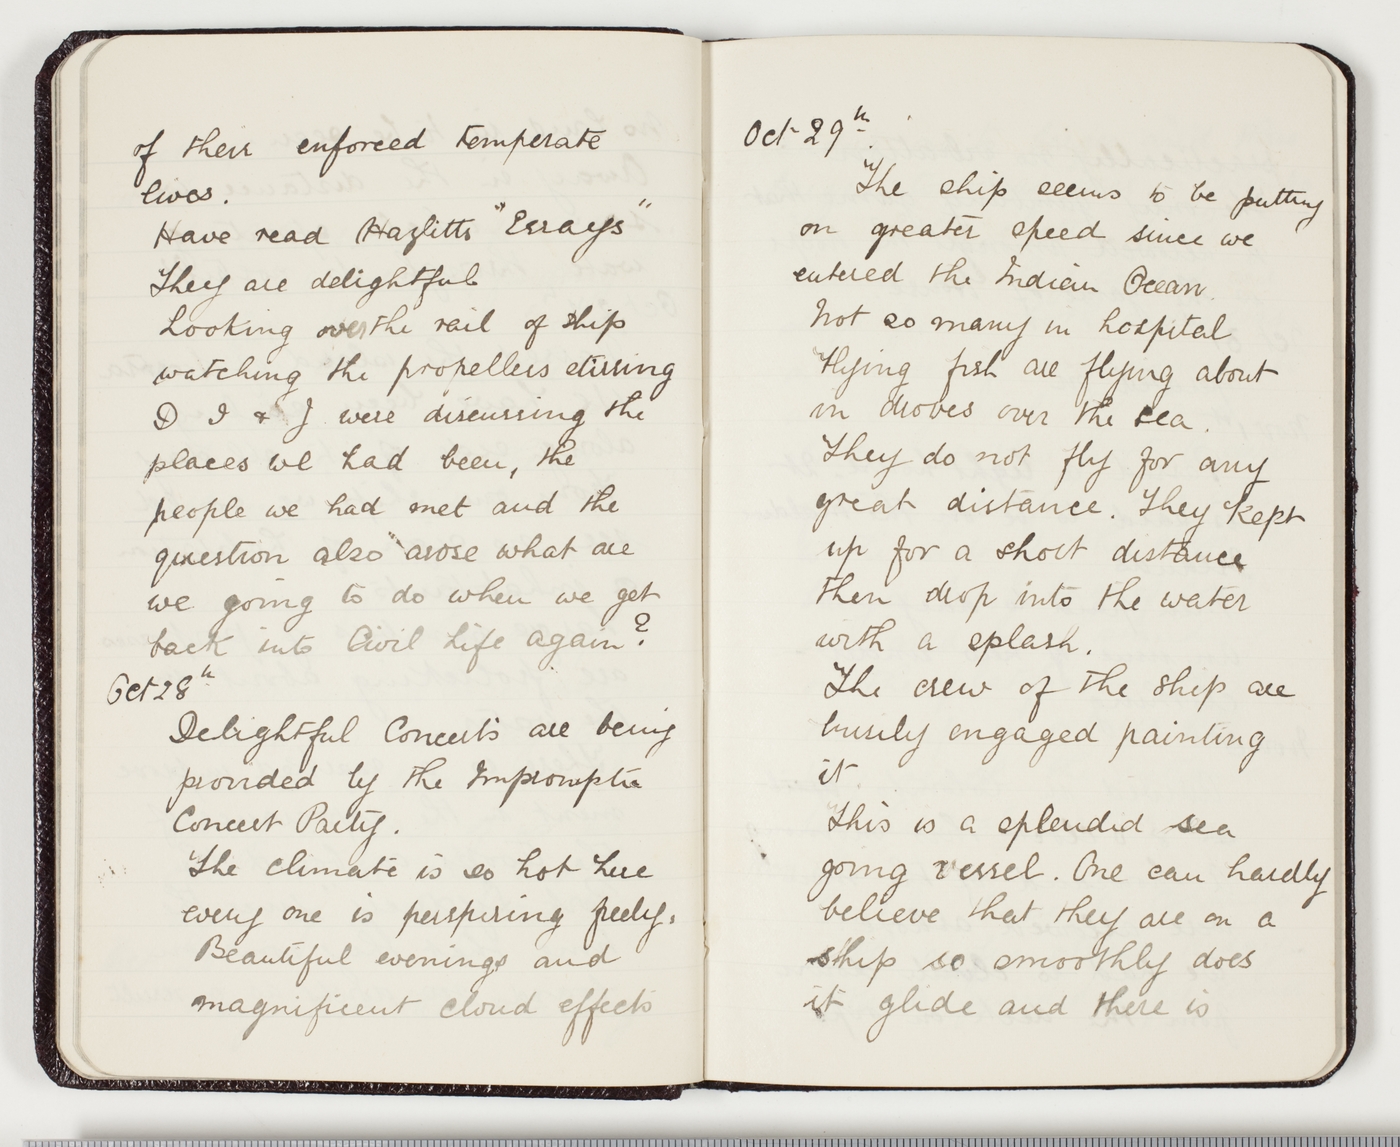 of their enforced temperate
lives.
Have read Hazlitts "Essays"
They are delightful
Looking over the rail of ship
watching the propellers stirring
D I & J were discussing the
places we had been, the
people we had met and the
question also arose what are
we going to do when we get
back into Civil Life again?
Oct 28th
Delightful Concerts are being
provided by the Impromptu
Concert Party.
The climate is so hot here
every one is perspiring freely.
Beautiful evenings and
magnificent cloud effects
Oct 29th.
The ship seems to be putting
on greater speed since we
entered the Indian Ocean.
Not so many in hospital
Flying fish are flying about
in droves over the sea.
They do not fly for any
great distance. They kept
up for a short distance
then drop into the water
with a splash.
The crew of the ship are
busily engaged painting
it.
This is a splendid sea
going vessel. One can hardly
believe that they are on a
ship so smoothly does
it glide and there is